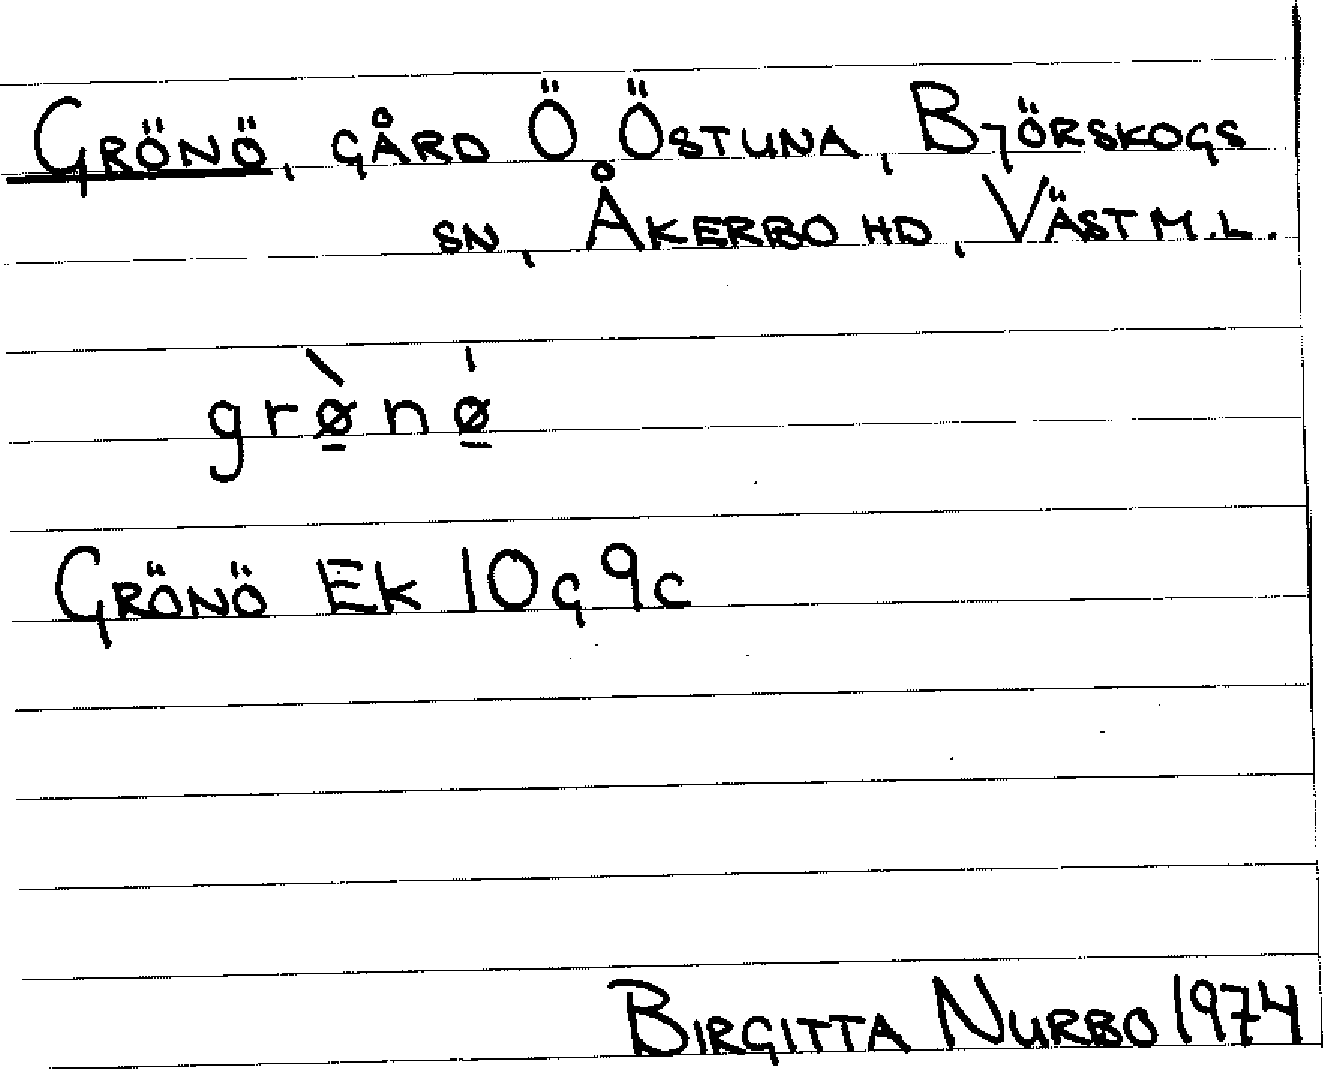 GRÖNÖ, GÅRD Ö ÖSTUNA, BJÖRSKOGS
SN, ÅKERBO HD, VÄSTM.L.
grø̲̀nǿ̲
GRÖNÖ EK 10G 9c
BIRGITTA NURBO 1974